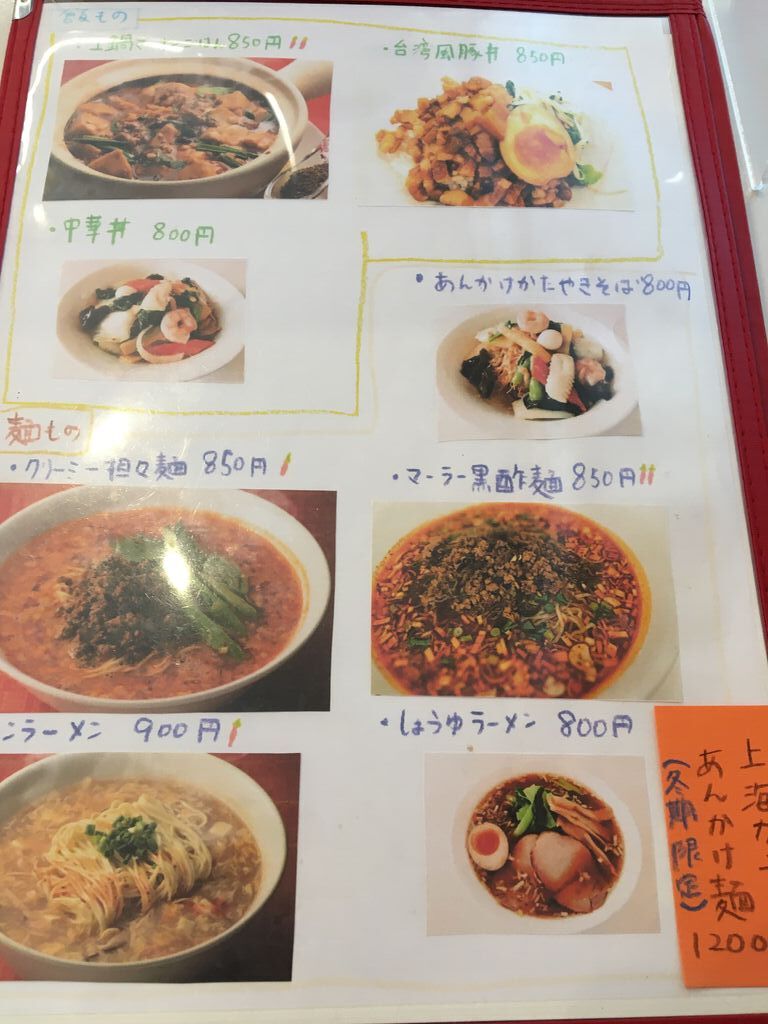 飯もの
850円
・台湾風豚丼 850円
・中華丼 800円
・あんかけかたやきそば 800円
麺もの
・クリーミー担々麺 850円
・マーラー黒酢麺 850円
ンラーメン 900円
・しょうゆラーメン 800円
上海カニ
あんかけ麺
(冬期限定)
1200